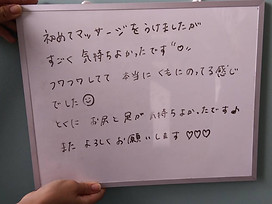 初めてマッサージをうけましたが
すごく 気持ちよかったです"♡"
フワフワしてて 本当に くもにのってる感じ
でした☺
とくに お尻と足が 気持ちよかったです♪
また よろしくお願いします♡♡♡